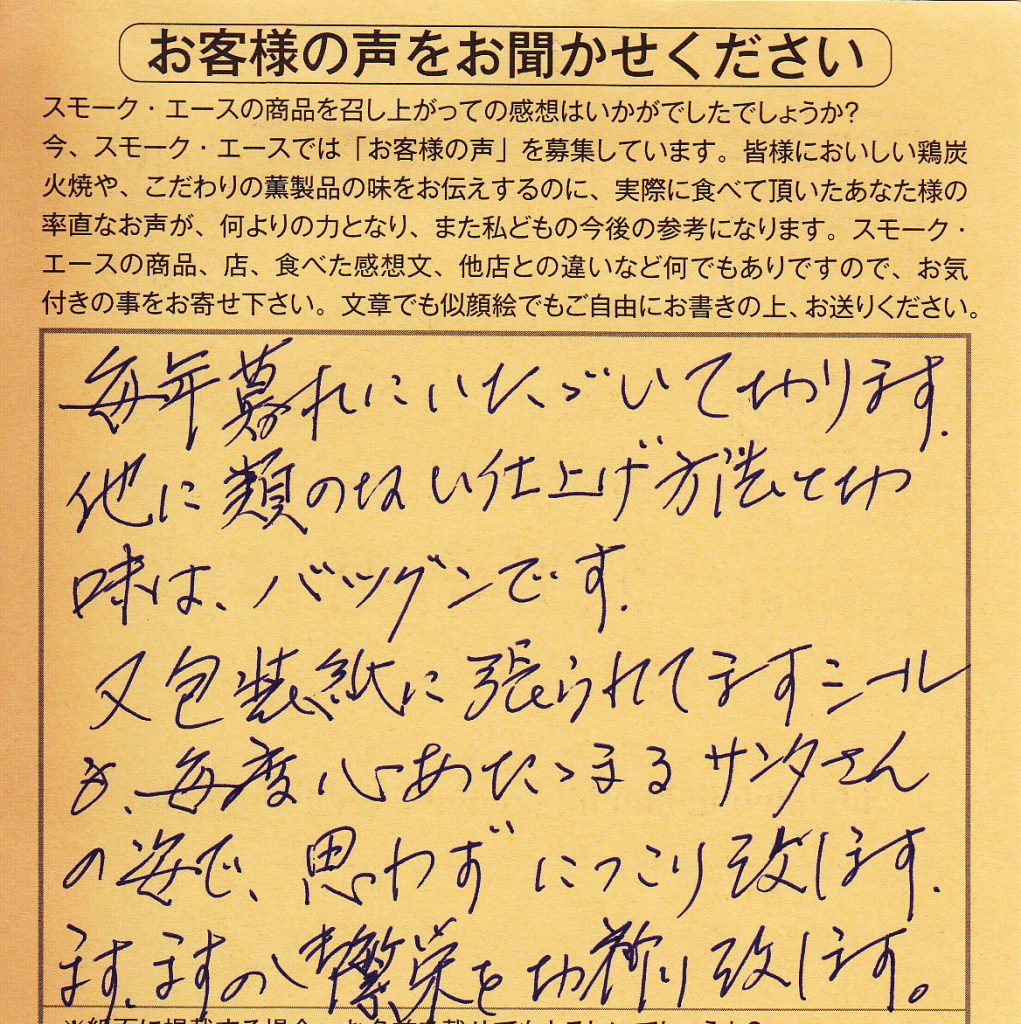 お客様の声をお聞かせください
スモーク・エースの商品を召し上がっての感想はいかがでしたでしょうか?
今、スモーク・エースでは「お客様の声」を募集しています。皆様においしい鶏炭
火焼や、こだわりの薫製品の味をお伝えするのに、実際に食べて頂いたあなた様の
率直なお声が、何よりの力となり、また私どもの今後の参考になります。スモーク・
エースの商品、店、食べた感想文、他店との違いなど何でもありですので、お気
付きの事をお寄せ下さい。文章でも似顔絵でもご自由にお書きの上、お送りください。
毎年暮れにいただいております.
他に類のない仕上げ方法とお
味は、バツグンです.
又包装紙に張られてますシール
も、毎度心あたたまるサンタさん
の姿で、思わずにっこり致します.
ます、ますの繁栄をお祈り致します。